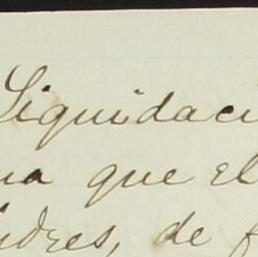 Liquidaci
na que el
ndres, de f